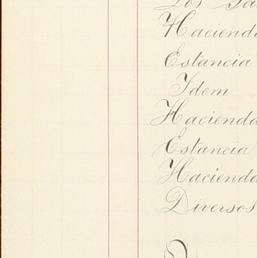 Los
Hacienda
Estancia
Idem
Hacienda
Estancia
Hacienda
Diversos